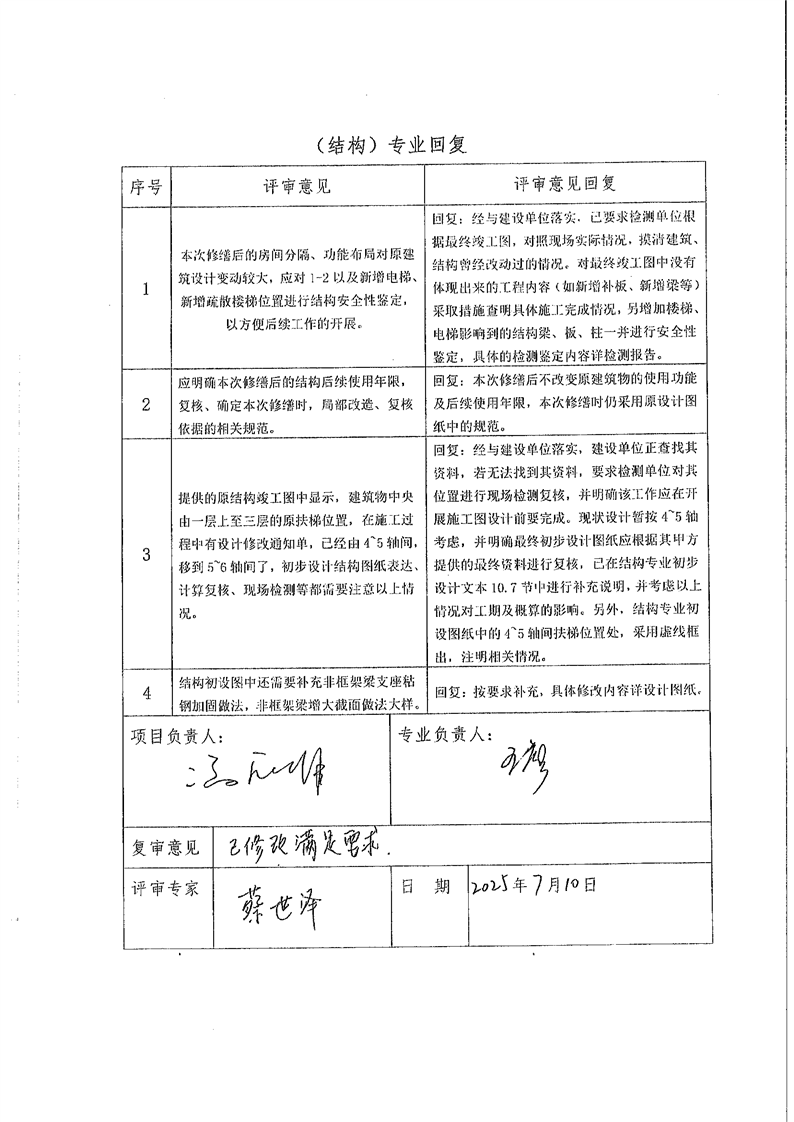 （结构）专业回复
序号
评审意见
评审意见回复
1
本次修缮后的房间分隔、功能布局对原建
筑设计变动较大，应对 1-2 以及新增电梯、
新增疏散楼梯位置进行结构安全性鉴定，
以方便后续工作的开展。
回复：经与建设单位落实，已要求检测单位根
据最终竣工图，对照现场实际情况，摸清建筑、
结构曾经改动过的情况。对最终竣工图中没有
体现出来的工程内容（如新增补板、新增梁等）
采取措施查明具体施工完成情况，另增加楼梯、
电梯影响到的结构梁、板、柱一并进行安全性
鉴定，具体的检测鉴定内容详检测报告。
2
应明确本次修缮后的结构后续使用年限，
复核、确定本次修缮时，局部改造、复核
依据的相关规范。
回复：本次修缮后不改变原建筑物的使用功能
及后续使用年限，本次修缮时仍采用原设计图
纸中的规范。
3
提供的原结构竣工图中显示，建筑物中央
由一层上至三层的原扶梯位置，在施工过
程中有设计修改通知单，已经由 4~5 轴间，
移到 5~6 轴间了，初步设计结构图纸表达、
计算复核、现场检测等都需要注意以上情
况。
回复：经与建设单位落实，建设单位正查找其
资料，若无法找到其资料，要求检测单位对其
位置进行现场检测复核，并明确该工作应在开
展施工图设计前要完成。现状设计暂按 4~5 轴
考虑，并明确最终初步设计图纸应根据其甲方
提供的最终资料进行复核，已在结构专业初步
设计文本 10.7 节中进行补充说明，并考虑以上
情况对工期及概算的影响。另外，结构专业初
设图纸中的 4~5 轴间扶梯位置处，采用虚线框
出，注明相关情况。
4
结构初设图中还需要补充非框架梁支座粘
钢加固做法，非框架梁增大截面做法大样。
回复：按要求补充，具体修改内容详设计图纸。
项目负责人：
专业负责人：
复审意见
已修改满足要求.
评审专家
蔡世泽
日 期
2025年7月10日